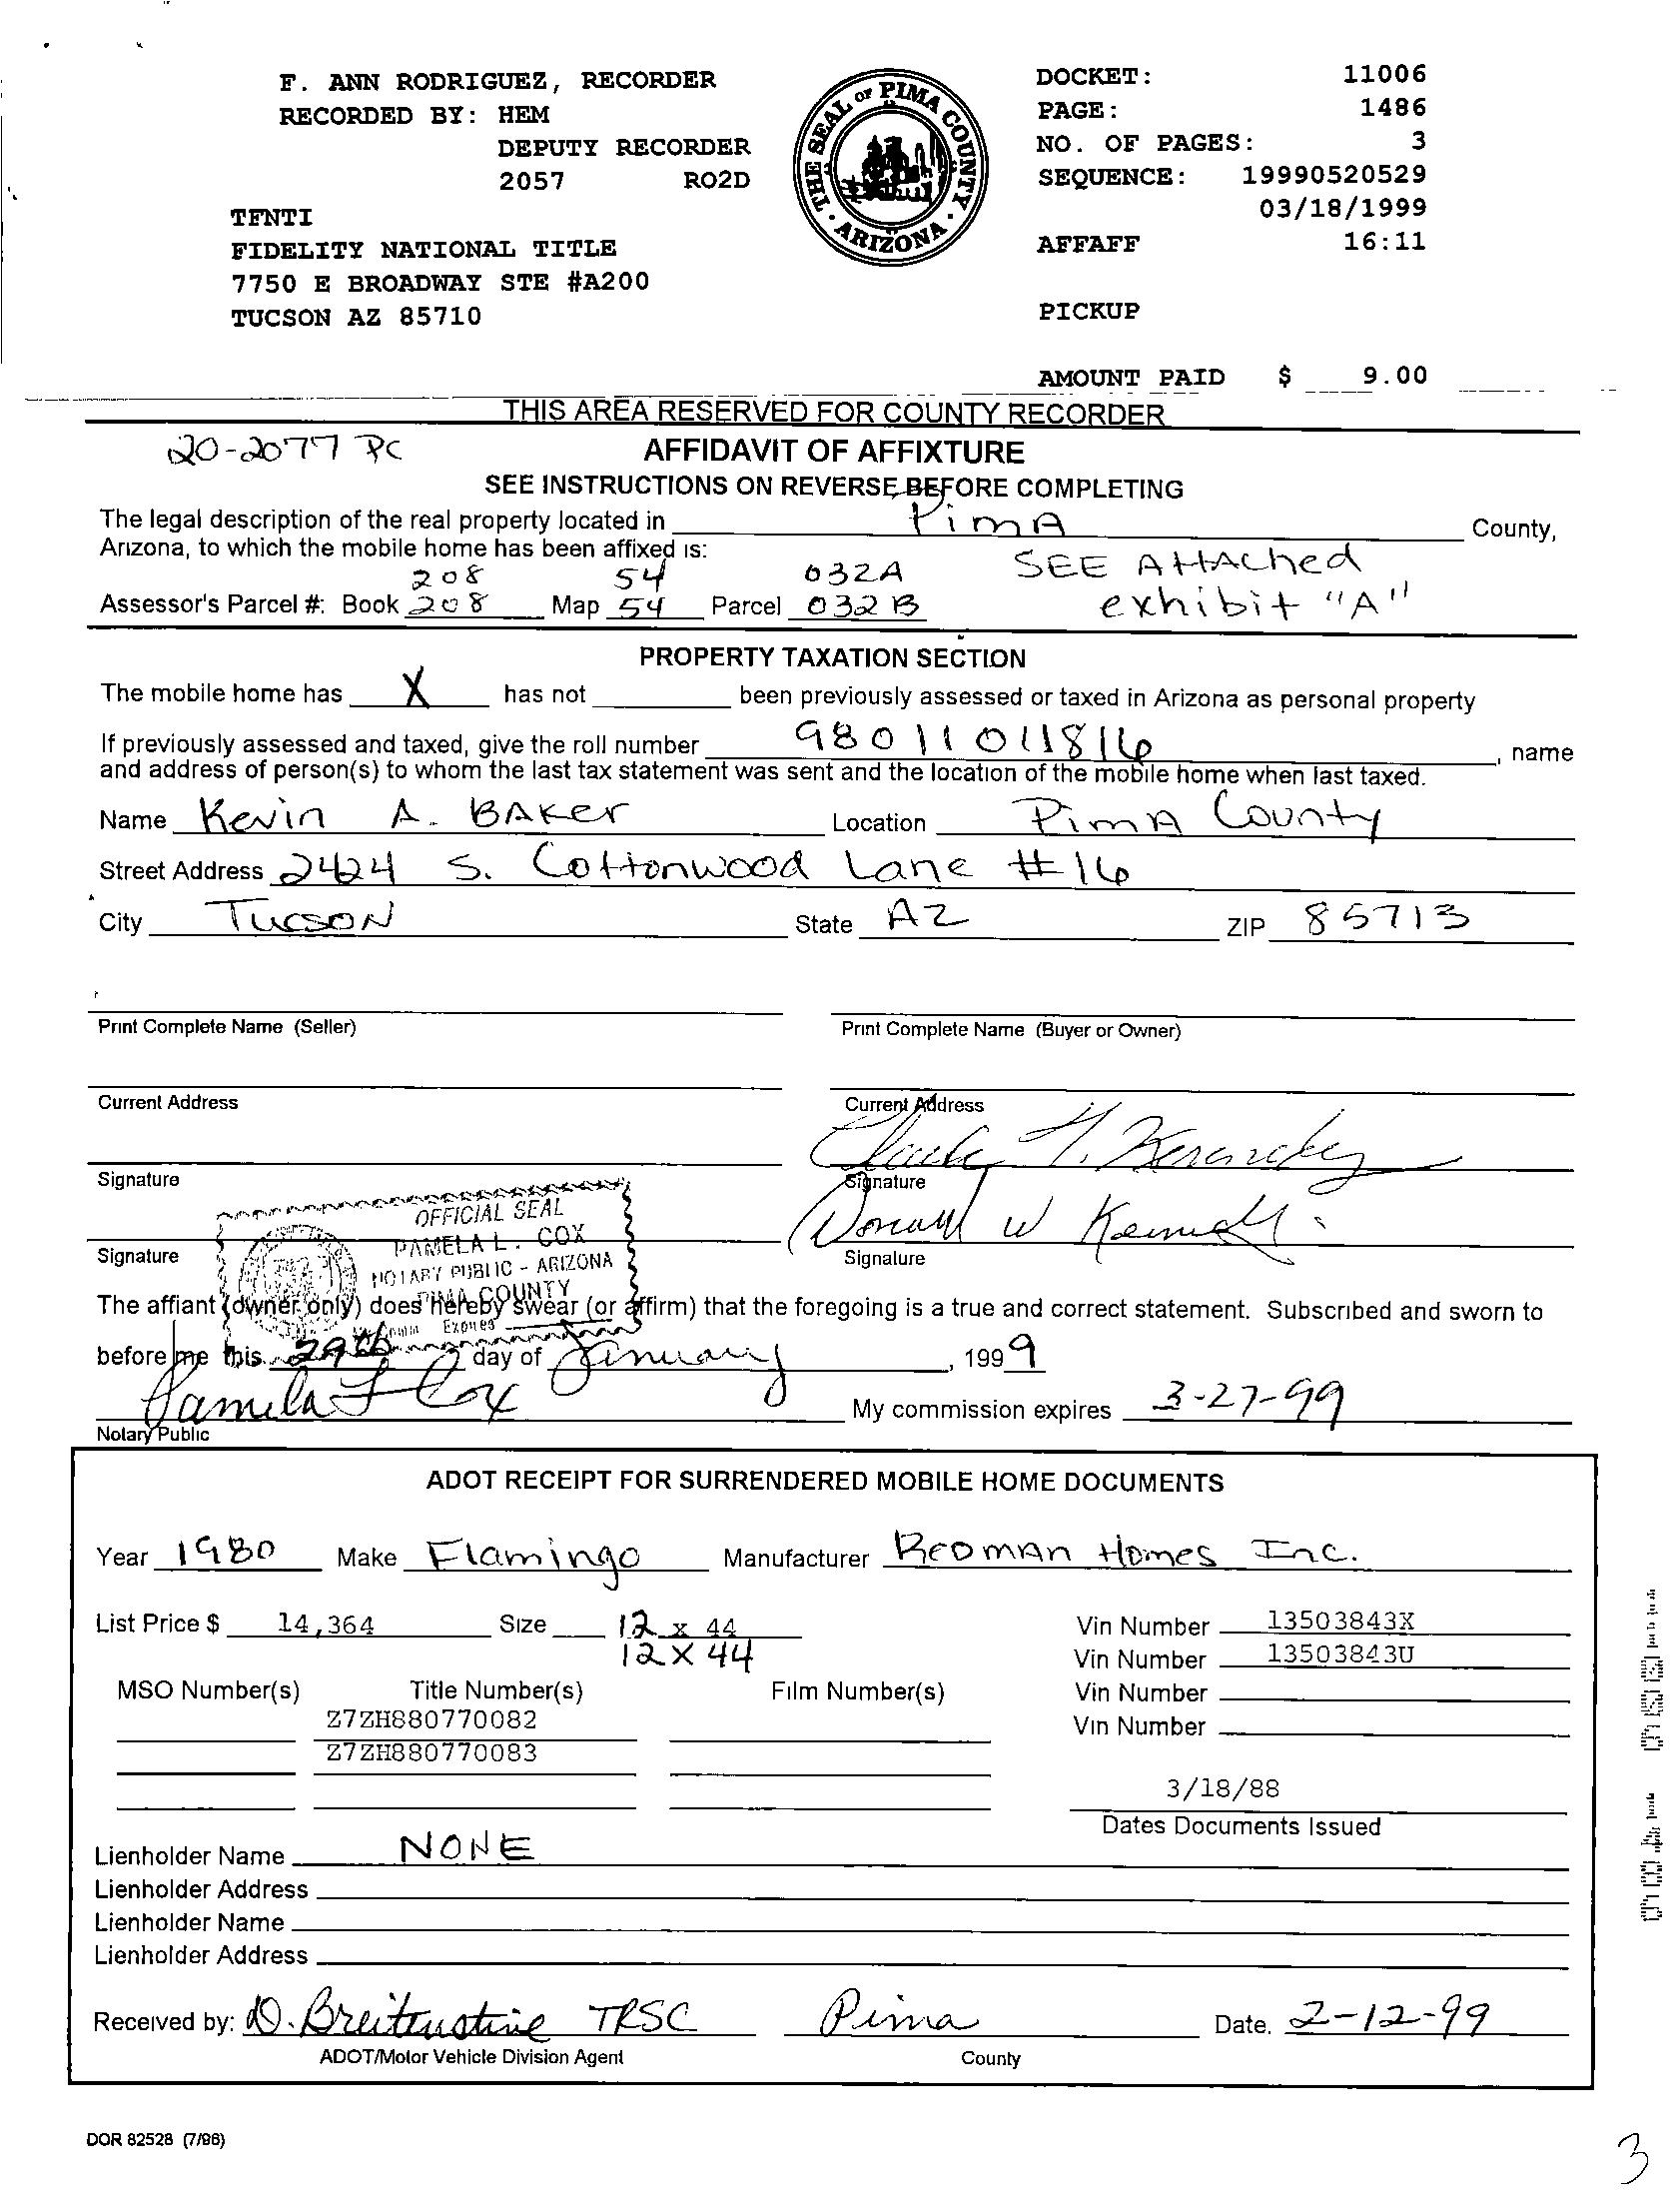 F. ANN RODRIGUEZ, RECORDER
RECORDED BY: HEM
DEPUTY RECORDER
2057 RO2D
TFNTI
FIDELITY NATIONAL TITLE
7750 E BROADWAY STE #A200
TUCSON AZ 85710
THE SEAL OF PIMA COUNTY
ARIZONA
DOCKET: 11006
PAGE: 1486
NO. OF PAGES: 3
SEQUENCE: 19990520529
03/18/1999
AFFAFF 16:11
PICKUP
AMOUNT PAID $ 9.00
THIS AREA RESERVED FOR COUNTY RECORDER
20-2077 PC AFFIDAVIT OF AFFIXTURE
SEE INSTRUCTIONS ON REVERSE BEFORE COMPLETING
The legal description of the real property located in PimA County,
Arizona, to which the mobile home has been affixed is: SEE AttAched
208 54 032A
Assessor's Parcel #: Book 208 Map 54 Parcel 032B exhibit "A"
PROPERTY TAXATION SECTION
The mobile home has X has not been previously assessed or taxed in Arizona as personal property
If previously assessed and taxed, give the roll number 98011011816, name
and address of person(s) to whom the last tax statement was sent and the location of the mobile home when last taxed.
Name Kevin A. BAKer Location PimA County
Street Address 2424 S. Cottonwood Lane #16
City TUCSON State AZ ZIP 85713
Print Complete Name (Seller) Print Complete Name (Buyer or Owner)
Current Address Current Address
Signature Signature
Donald W
Signature Signature
OFFICIAL SEAL
PAMELA L. COX
NOTARY PUBLIC - ARIZONA
PIMA COUNTY
Comm Expires
The affiant (owner only) does hereby swear (or affirm) that the foregoing is a true and correct statement. Subscribed and sworn to
before me this 29th day of January, 1999
Pamela L Cox My commission expires 3-27-99
Notary Public
ADOT RECEIPT FOR SURRENDERED MOBILE HOME DOCUMENTS
Year 1980 Make Flamingo Manufacturer RedmAn Homes Inc.
List Price $ 14,364 Size 12 x 44 Vin Number 13503843X
12 X 44 Vin Number 13503843U
MSO Number(s) Title Number(s) Film Number(s) Vin Number
Z7ZH880770082 Vin Number
Z7ZH880770083
3/18/88
Dates Documents Issued
Lienholder Name NONE
Lienholder Address
Lienholder Name
Lienholder Address
Received by: D. Breitenstine TRSC Pima Date. 2-12-99
ADOT/Motor Vehicle Division Agent County
DOR 82528 (7/96)
3